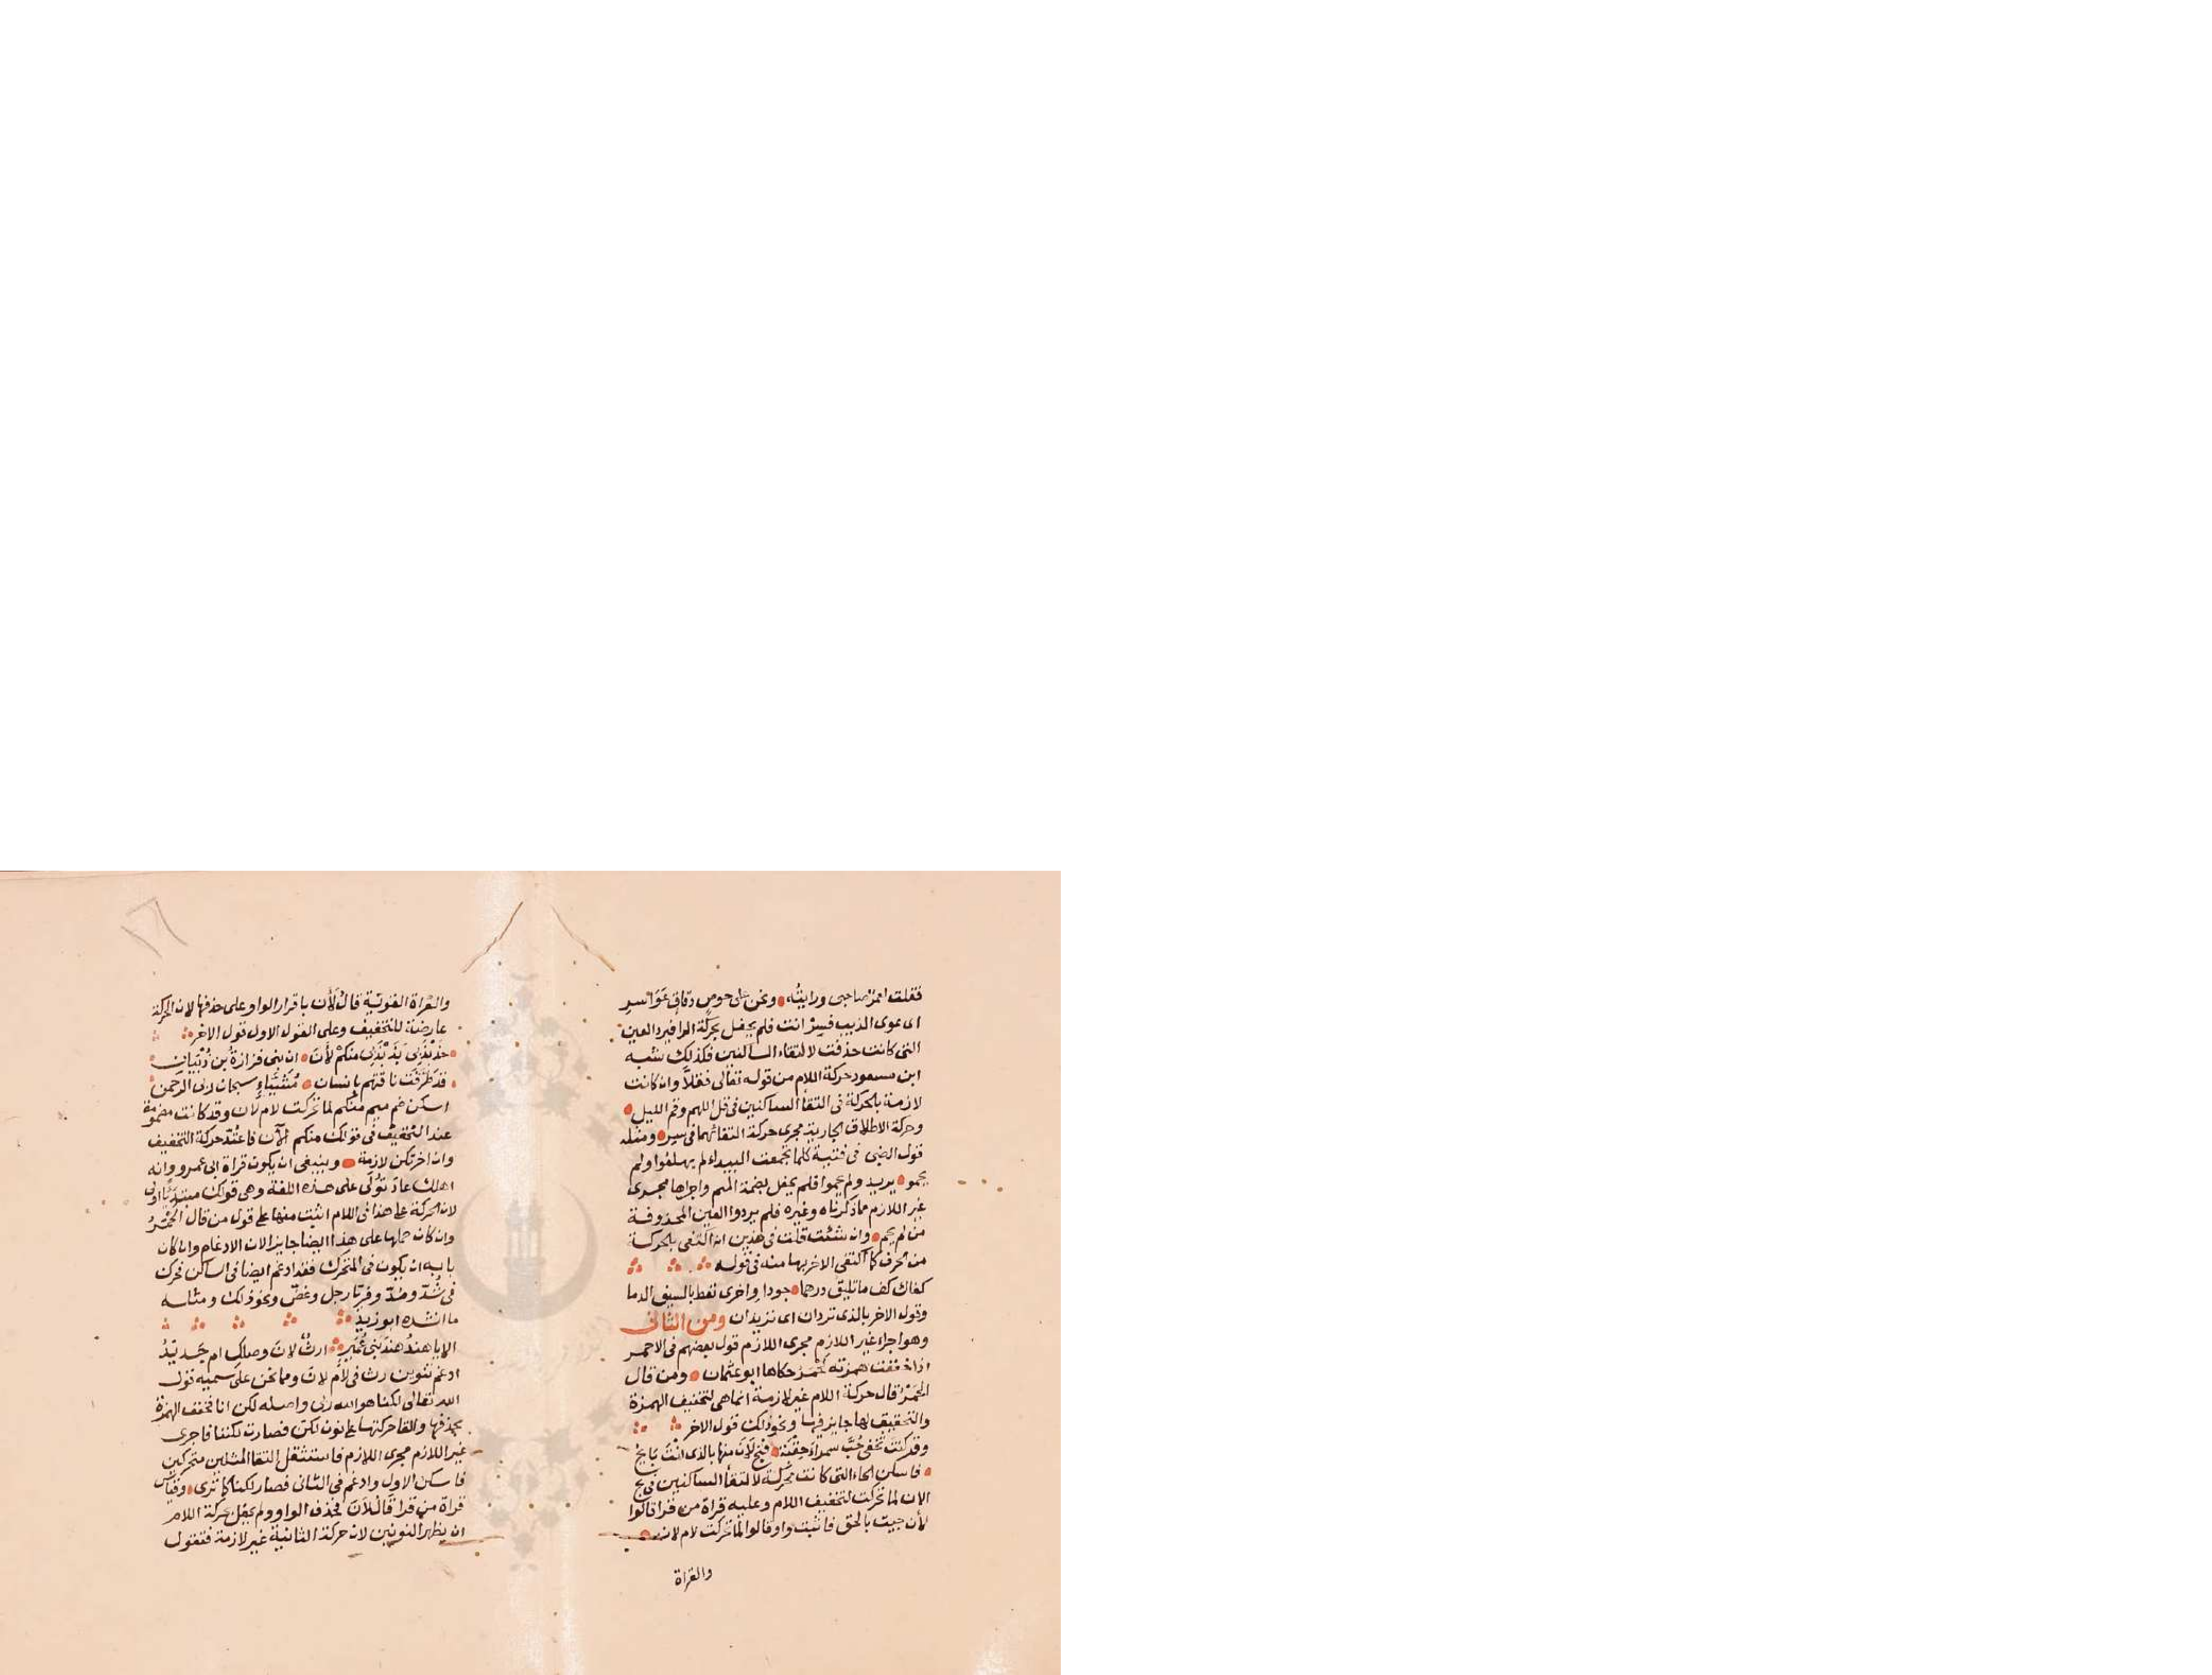 فقلت امر صاحبي ورايته • ونحن على خوص دقاق عواسر
اى عوى الذيب فسر انت فلم يحفل بحركة الرا فيرد العين
التى كانت حذفت لالتقاء الساكنين فكذلك شبه
ابن مسعود حركة اللام من قوله تعالى فقلا وان كانت
لازمة بالحركة فى التقا الساكنين فى قل اللهم وقم الليل
وحركة الاطلاق الجارية مجرى حركة التقائهما فى سير • ومثله
قول الضبى فى فتية كلما تجمعت البيداء لم يهلعوا ولم
يخمو • يريد ولم يخموا فلم يحفل بضمة الميم واجراها مجرى
غير اللازم مماذكرناه وغيره فلم يردوا العين المحذوفة
من لم يخم • وان شئت قلت فى هذين انه اكتفى بالحركة
من الحرف كما اكتفى الاخر بها منه فى قوله
كفاك كف ما تليق درهما • جودا واخرى تعط بالسيف الدما
وقول الاخر بالذى تردان اى تزيدان ومن الثانى
وهو اجراء غير اللازم مجرى اللازم قول بعضهم فى الاحمر
اذا خففت همزته لحمر حكاها ابو عثمان • ومن قال
الحمر قال حركة اللام غير لازمة انما هى لتخفيف الهمزة
والتحقيق لها جايز فيها ونحو ذلك قول الاخر
وقد كنت تخفى حب سمراء حقبة • فبح لان منها بالذى انت بايح
فاسكن الحاء التى كانت متحركة لالتقأ الساكنين فى بح
الان لما تحركت لتخفيف اللام وعليه قراة من قرا قالوا
لان جيت بالحق فاثبت واو قالوا لما تحركت لام لان
والقراة
والقراة القوية قال لان باقرار الواو على حذفها لان الحركة
عارضة للتخفيف وعلى القول الاول قول الاخر
حدبدبى بدبدبى منكم لان • ان بنى فزارة بن ذبيان
قد طرقت ناقتهم بانسان • مشنياء سبحان ربى الرحمن
اسكن ميم منكم لما تحركت لام لان وقد كانت مضمومة
عند التخفيف فى قولك منكم الآن فاعتد حركة التخفيف
وان لم تكن لازمة • وينبغى ان يكون قراة ابى عمرو وانه
اهلك عاد لولى على هذه اللغة وهى قولك مبتديا اولى
لان الحركة على هذا فى اللام اثبت منها على قول من قال الحمر
وان كان حملها على هذا ايضا جايز الان الادغام وان كان
بابه ان يكون فى المتحرك فقد ادغم ايضا فى الساكن فحرك
فى شد ومد وفر يا رجل وعض ونحو ذلك ومثاله
ما انشده ابو زيد
الا يا هند هند بنى عمير • ارث لان وصلك ام جديد
ادغم تنوين رث فى لام لان ومما نحن على سميه قول
الله تعالى لكنا هو الله ربى واصله لكن انا فخفف الهمزة
بحذفها والقا حركتها على نون لكن فصارت لكننا فاجرى
غير اللازم مجرى اللازم فاستثقل التقا المثلين متحركين
فاسكن الاول وادغم فى الثانى فصار لكنا كما ترى • وقياس
قراة من قرا قال لان فحذف الواو ولم يحفل بحركة اللام
ان يظهر النونين لان حركة الثانية غير لازمة فتقول